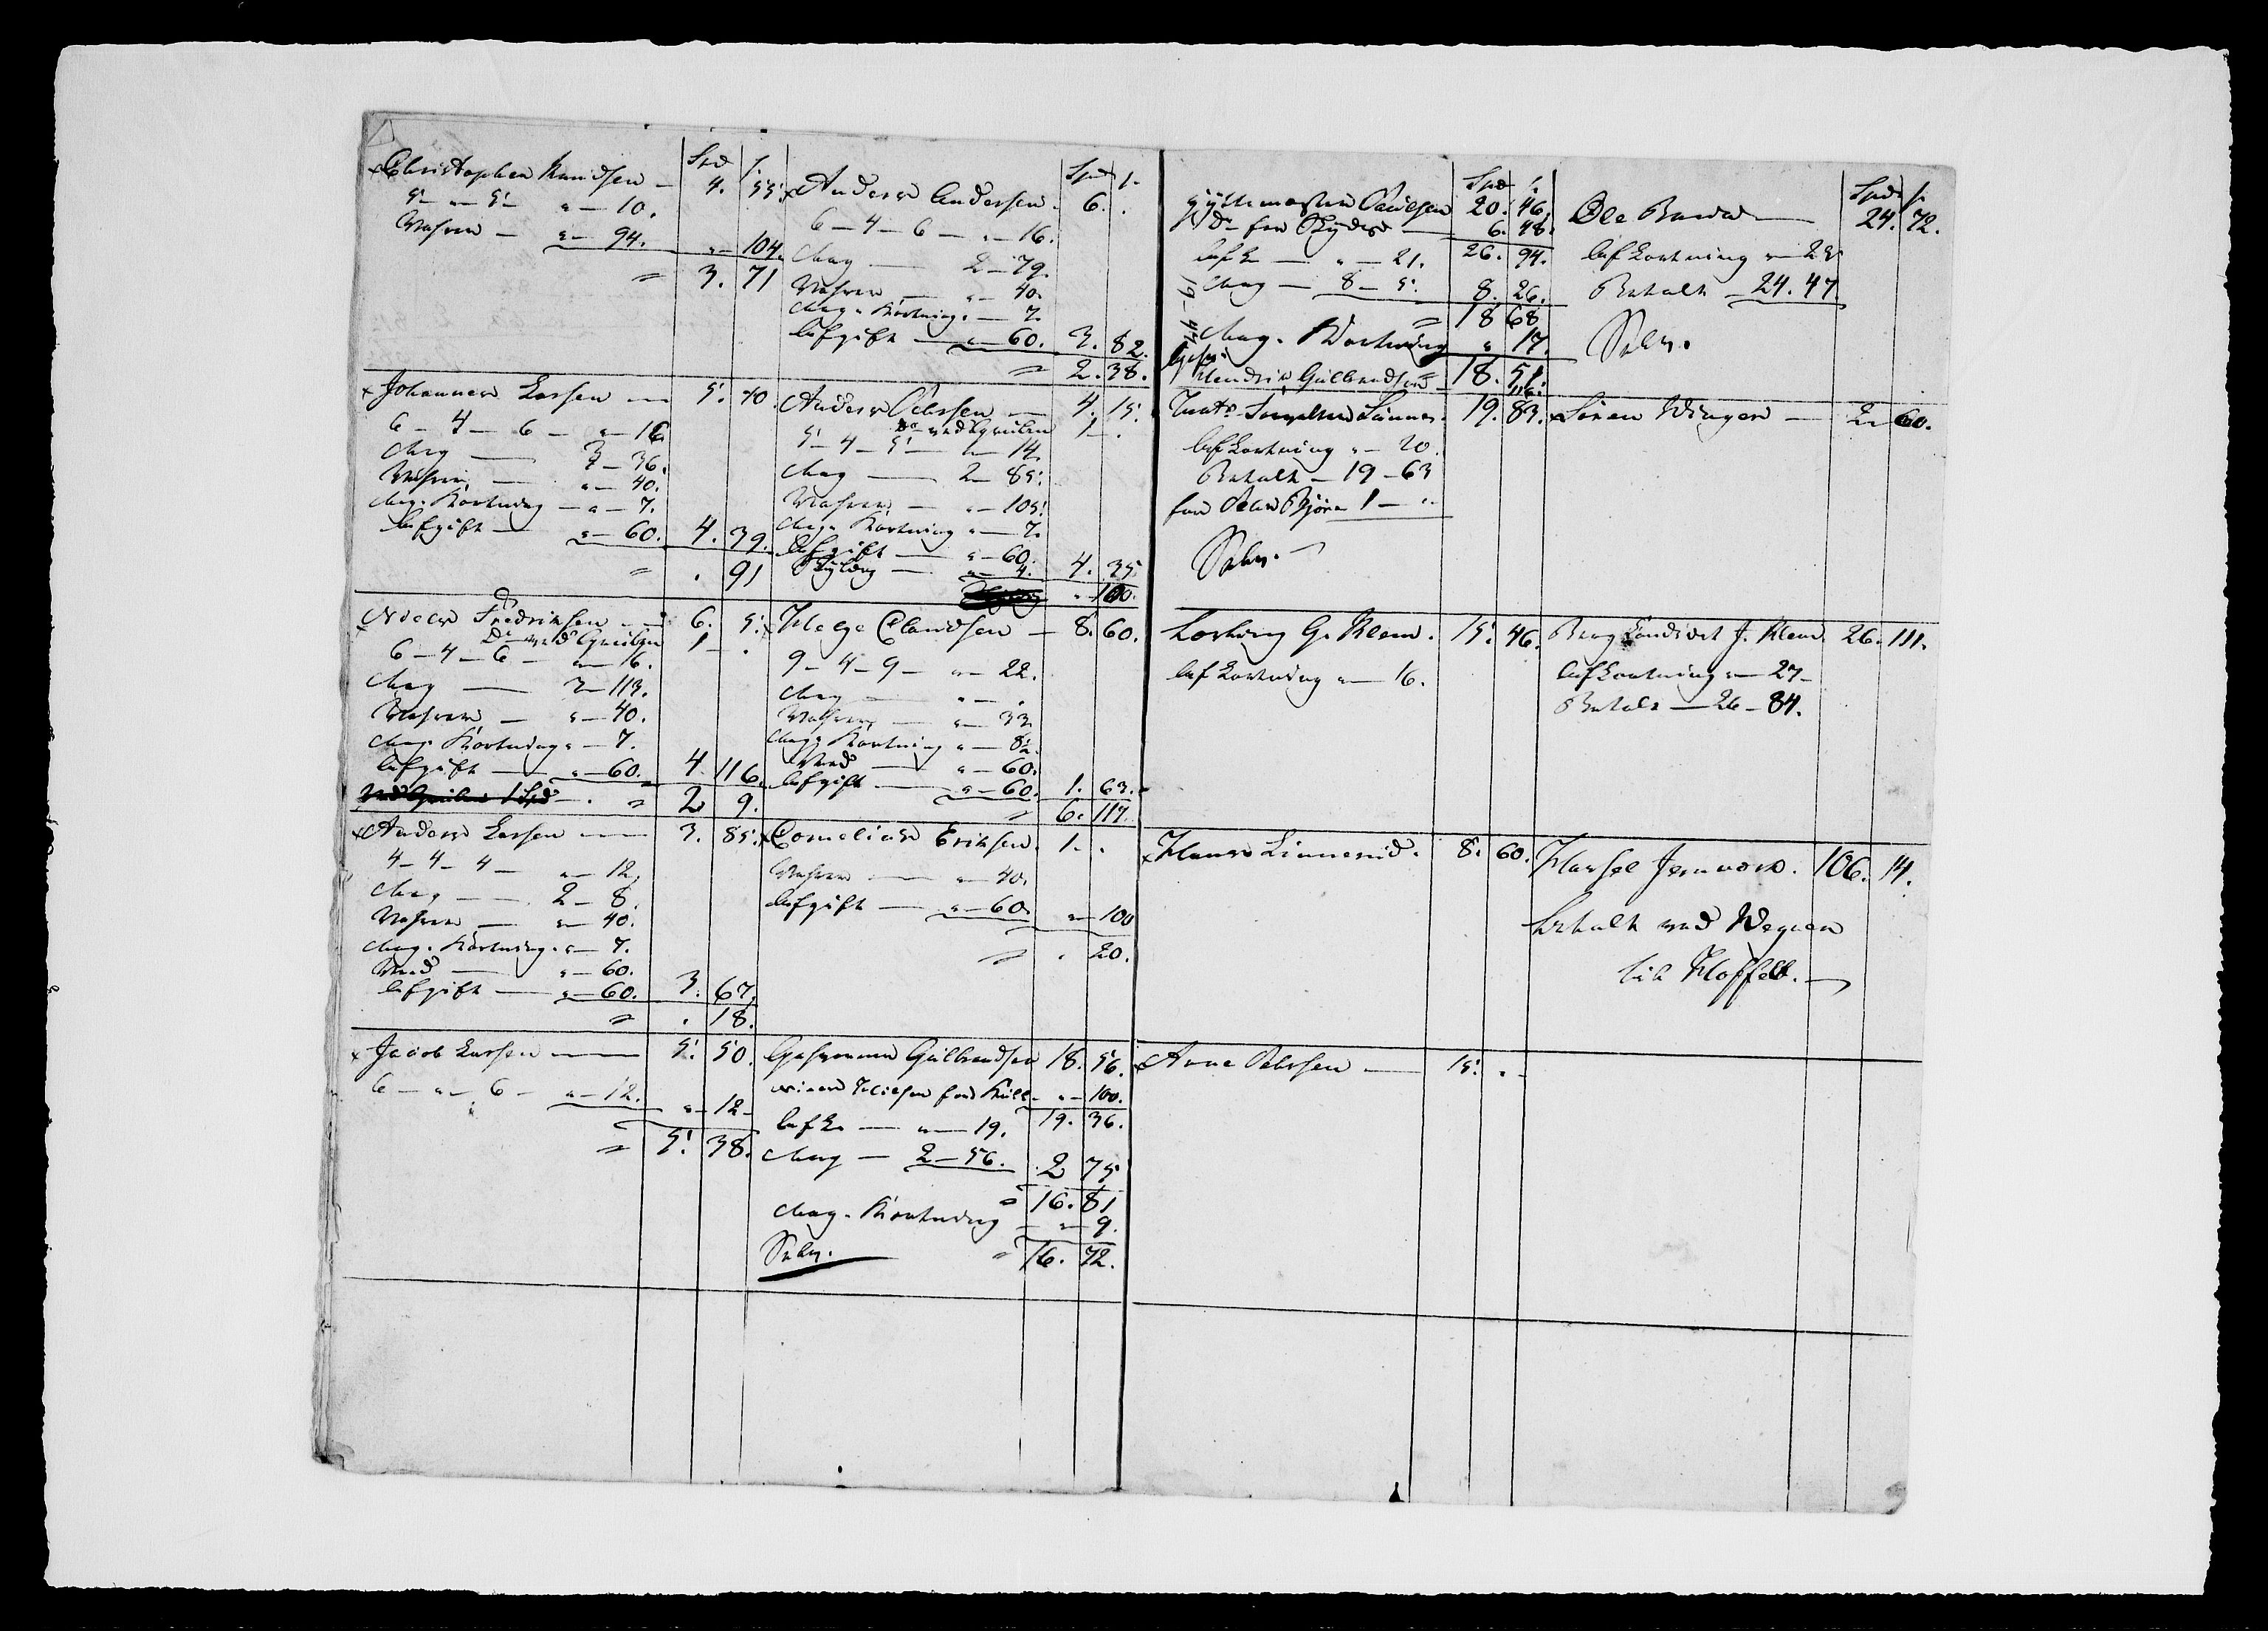 Spd ß
Christopher Knudsen — 4. 55.
5 - „ - 5 - „ - 10.
Wahren — „ - 94. „ - 104.
= 3. 71
Johannes Larsen — 5. 10.
6 - 4 - 6 - „ - 16.
Mag — 3 - 36.
Wahren — „ - 40.
Mag. Kortning — „ - 7.
Afgift — „ - 60. 4. 39.
= . 91
Niels Fredriksen — 6. 5.
Do ved Gruben 1 - .
6 - 4 - 6 - „ - 16.
Mag — 2 - 113.
Wahren — „ - 40.
Mag. Kortning „ - 7.
Afgift — „ - 60. 4. 116.
= 2. 9.
Anders Larsen — 3. 85.
4 - 4 - 4 - „ - 12.
Mag — 2 - 8.
Wahren — „ - 40.
Mag. Kortning. „ - 7.
Wed — „ - 60.
Afgift — „ - 60. 3. 67.
= . 18.
Jacob Larsen — 5. 50.
6 - „ - 6 - „ - 12. „ - 12 -
= 5. 38.
Spd ß
Anders Andersen. 6. .
6 - 4 - 6 - „ - 16.
Mag — 2 - 79.
Wahren — „ - 40.
Mag. Kortning. — 7.
Afgift — „ - 60. 3. 82.
= 2. 38.
Anders Olessen — 4. 15.
Do ved Gruben 1 - .
5 - 4 - 5 - „ - 14.
Mag — 2 - 85.
Wahren — „ - 105.
Mag. Kortning „ - 7.
Afgift — „ - 60.
„ - 4. 4. 35.
„ - 100.
Helge Clandsen — 8. 60.
9 - 4 - 9 - „ - 22.
Mag — „ - .
Wahren — „ - 33.
Mag. Kortning „ - 8½.
Wed — „ - 60.
Afgift — „ - 60. 1. 63.
= 6. 117.
Cornelius Eriksen. 1. .
Wahren — „ - 40.
Afgift — „ - 60. „ - 100
= . 20.
Gulbrandsen 18. 56.
„ - 100.
Afk. — „ - 19. 19. 36.
Mag — 2 - 56. 2 75
= 16. 81
Mag. Kortning — „ - 9.
Selv. = 16. 72.
Spd ß
Hyttemester Paulsen 20. 46.
Do for 6. 48.
Afk — „ - 21. 26. 94.
Mag — 8 - 5. 8. 26.
= 18 68
Mag. Kortning „ 17.
Hendrik Gulbrandsen 18. 51.
19. 83.
Afkortning „ - 20.
Betalt — 19 - 63
for Peder Bjørn 1 - „
Selv.
G. Klem. 15. 46.
Afkortning „ - 16.
Hans Linnerud. 8. 60.
Arne Pedersen — 15. „ -
Spd ß
Ole — 24. 72.
Afkortning „ - 25
Betalt — 24. 47.
Selv.
Søren Winger — 2 60.
Berg J. Klem. 26. 111.
Afkortning „ - 27 -
Betalt — 26 - 84.
Hassel Jernværk. 106. 14.
betalt ved Wegnen
til Hoffet. —